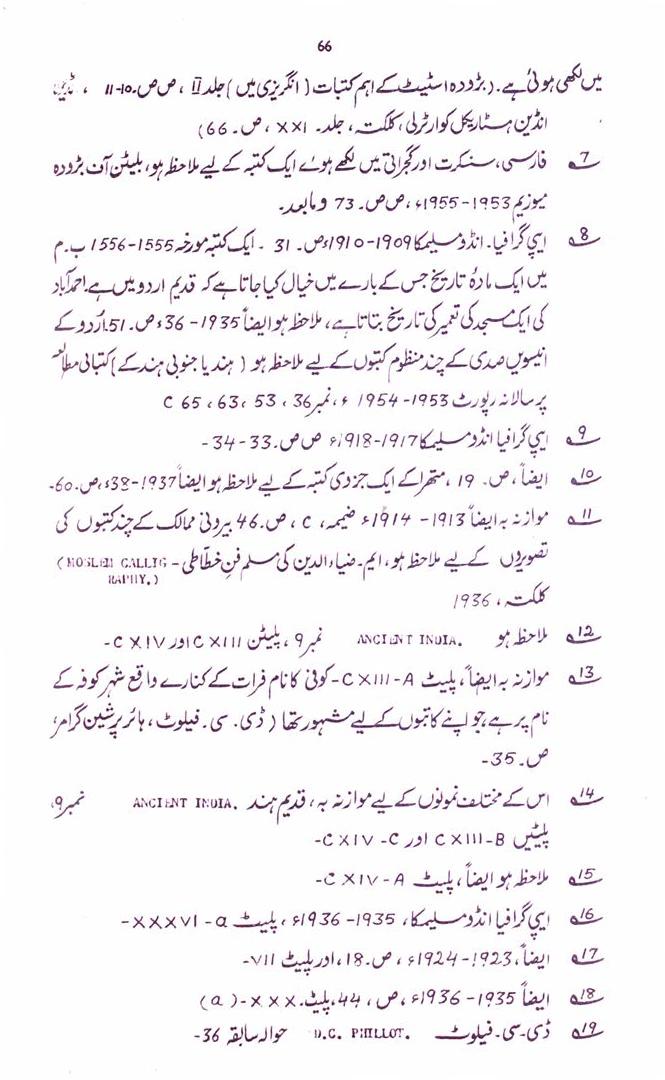 66
میں لکھی ہوئی ہے۔ (بڑودہ اسٹیٹ کے اہم کتبات (انگریزی میں) جلد II، ص ص۔ 10-11،
انڈین ہسٹاریکل کوارٹرلی، کلکتہ، جلد۔ XXI، ص۔ 66)
7ؔ فارسی، سنسکرت اور گجراتی میں لکھے ہوئے ایک کتبہ کے لیے ملاحظہ ہو، بلیٹن آف بڑودہ
میوزیم 1953-1955ء، ص ص۔ 73 و مابعد۔
8ؔ ایپی گرافیا۔ انڈو مسلیمکا 1909-1910ء ص۔ 31 ۔ ایک کتبہ مورخہ 1555-1556 ب۔م
میں ایک مادۂ تاریخ جس کے بارے میں خیال کیا جاتا ہے کہ قدیم اردو میں ہے، احمد آباد
کی ایک مسجد کی تعمیر کی تاریخ بتاتا ہے، ملاحظہ ہو ایضاً 1935-36ء ص۔ 51۔ اُردو کے
انیسویں صدی کے چند منظوم کتبوں کے لیے ملاحظہ ہو (ہند یا جنوبی ہند کے) کتباتی مطالعہ
پر سالانہ رپورٹ 1953-1954ء، نمبر 36، 53، 63، 65 C
9ؔ ایپی گرافیا انڈو مسلیمکا 1917-1918ء ص ص۔ 33-34-
10ؔ ایضاً، ص۔ 19، متھرا کے ایک جزدی کتبہ کے لیے ملاحظہ ہو ایضاً 1937-38ء، ص۔ 60-
11ؔ موازنہ بہ ایضاً 1913-1914ء ضمیمہ، C، ص۔ 46 بیرونی ممالک کے چند کتبوں کی
تصویروں کے لیے ملاحظہ ہو، ایم۔ ضیاء الدین کی مسلم فنِ خطّاطی - (MOSLEM CALLIG
RAPHY.)
کلکتہ، 1936
12ؔ ملاحظہ ہو ANCIENT INDIA. نمبر 9، پلیٹن CXIII اور CXIV-
13ؔ موازنہ بہ ایضاً، پلیٹ CXIII-A- کوفی کا نام فرات کے کنارے واقع شہر کوفہ کے
نام پر ہے جو اپنے کاتبوں کے لیے مشہور تھا (ڈی۔ سی۔ فیلوٹ، ہائر پرشین گرامر،
ص۔ 35-
14ؔ اس کے مختلف نمونوں کے لیے موازنہ بہ، قدیم ہند ANCIENT INDIA. نمبر 9،
پلیٹیں CXIII-B اور CXIV-C-
15ؔ ملاحظہ ہو ایضاً، پلیٹ CXIV-A-
16ؔ ایپی گرافیا انڈو مسلیمکا، 1935-1936ء، پلیٹ XXXVI-a-
17ؔ ایضاً، 1923-1924ء، ص۔ 18، اور پلیٹ VII-
18ؔ ایضاً 1935-1936ء، ص، 44، پلیٹ۔ XXX-(a)
19ؔ ڈی۔سی۔ فیلوٹ D.C. PHILLOT. حوالہ سابقہ 36-